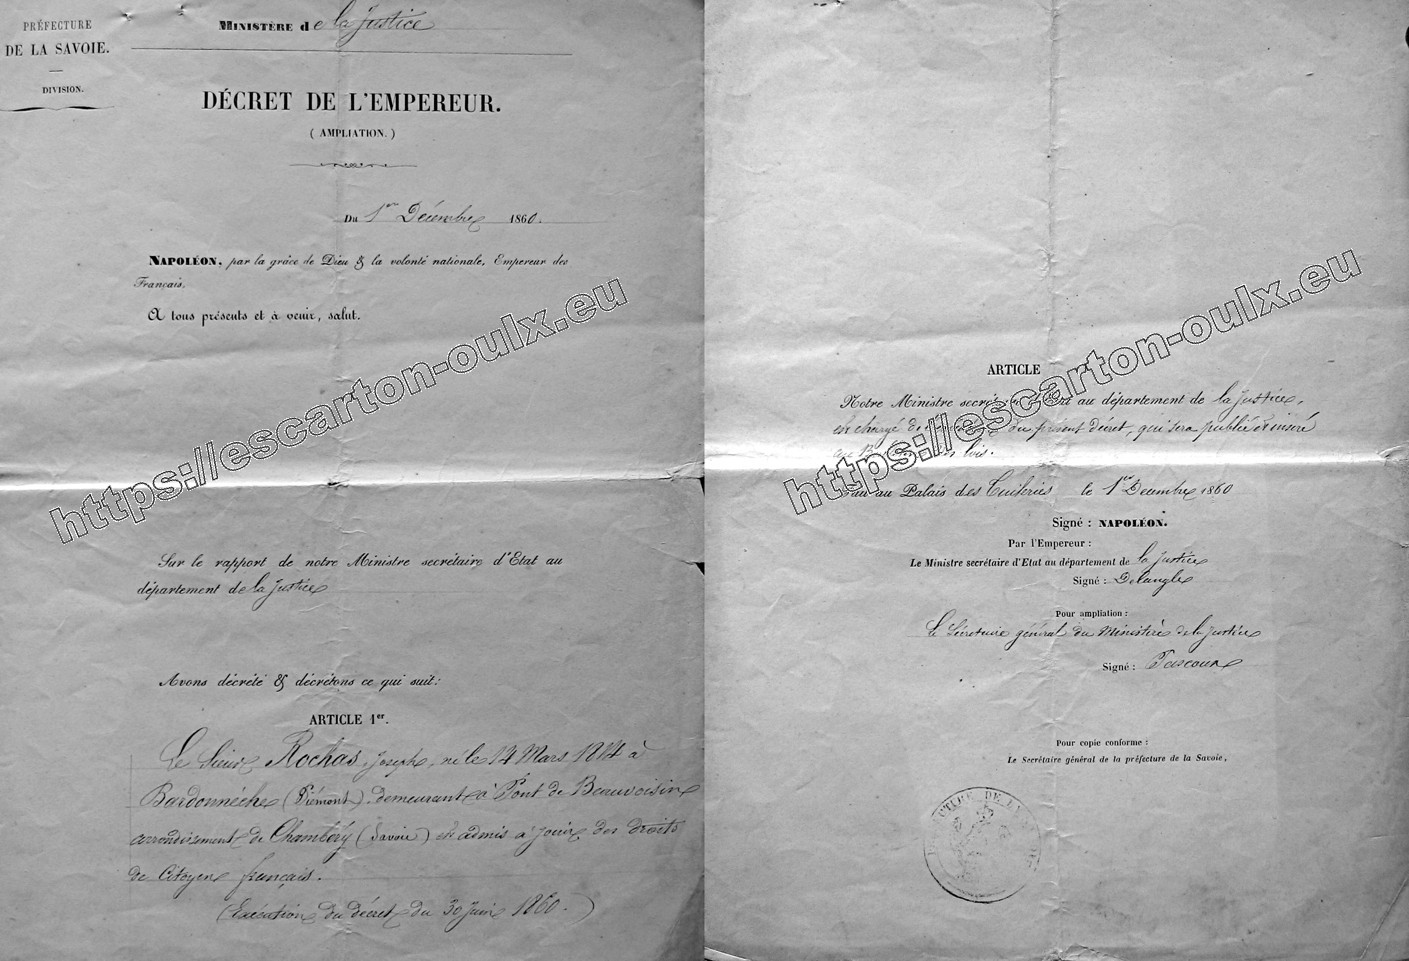 PRÉFECTURE
DE LA SAVOIE.
DIVISION.
MINISTÈRE de la Justice
DÉCRET DE L'EMPEREUR.
( AMPLIATION. )
Du 1er Décembre 1860.
NAPOLÉON, par la grâce de Dieu & la volonté nationale, Empereur des
Français,
A tous présents et à venir, salut.
https://escarton-oulx.eu
Sur le rapport de notre Ministre secrétaire d'Etat au
département de la Justice
Avons décrété & décrétons ce qui suit:
ARTICLE 1er.
Le Sieur Rochas, Joseph, né le 14 Mars 1814 à
Bardonnèche (Piémont), demeurant à Pont de Beauvoisin
arrondissement de Chambéry (Savoie) est admis à jouir des droits
de Citoyen français.
(Exécution du décret du 30 Juin 1860.)
https://escarton-oulx.eu
ARTICLE
Notre Ministre secrétaire d'Etat au département de la Justice,
est chargé de du présent décret, qui sera publié et inséré
au lois.
au Palais des Tuileries le 1er Décembre 1860
Signé : NAPOLÉON.
Par l'Empereur :
Le Ministre secrétaire d'Etat au département de la Justice
Signé : Delangle
Pour ampliation :
Le Secrétaire général du Ministère de la Justice
Signé :
Pour copie conforme :
Le Secrétaire général de la préfecture de la Savoie,